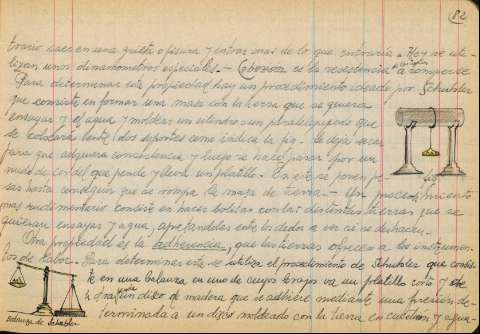 82
trario caer en una grieta o fisura y entrar mas de lo que entraría. Hoy se uti-
lizan unos dinamometros especiales. - Cohesion es la resistencia a romperse
Para determinar esta propiedad hay un procedimiento ideado por Schubler
que consiste en formar una masa con la tierra que se quiera
ensayar y el agua y moldear un cilindro o un paralepipedo que
se colocará entre dos soportes como indica la fig. Se deja secar
para que adquiera consistencia y luego se hace pasar por un
nudo de cordel que pende y lleva un platillo. En este se ponen pe-
fig
sas hasta conseguir que se rompa la masa de tierra. - Un procedimiento
mas rudimentario consiste en hacer bolitas con las distintas tierras que se
quieran ensayar y agua, apretandolas entre los dedos a ver si se deshacen.
Otra propiedad es la adherencia, que las tierras ofrecen a los instrumen-
tos de labor. Para determinar esta se utiliza el procedimiento de Schubler que consis-
te en una balanza en uno de cuyos brazos va un platillo corto y
otro un disco de madera que se adhiere mediante una presión de-
terminada a un disco moldeado con la tierra en cuestion y agua.
Balanza de Schubler